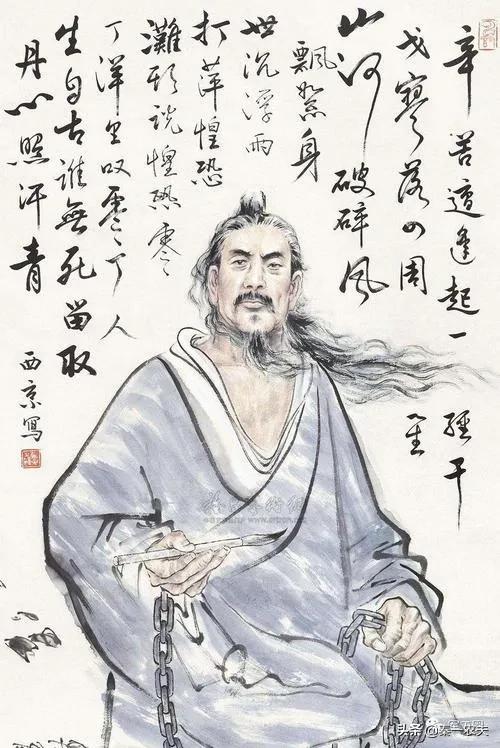 辛苦遭逢起一經干
戈寥落四周星
山河破碎风
飄絮身
世沉浮雨
打萍惶恐
灘頭說惶恐零
丁洋里叹零丁人
生自古誰無死留取
丹心照汗青
西京寫
头条 @秦一农夫